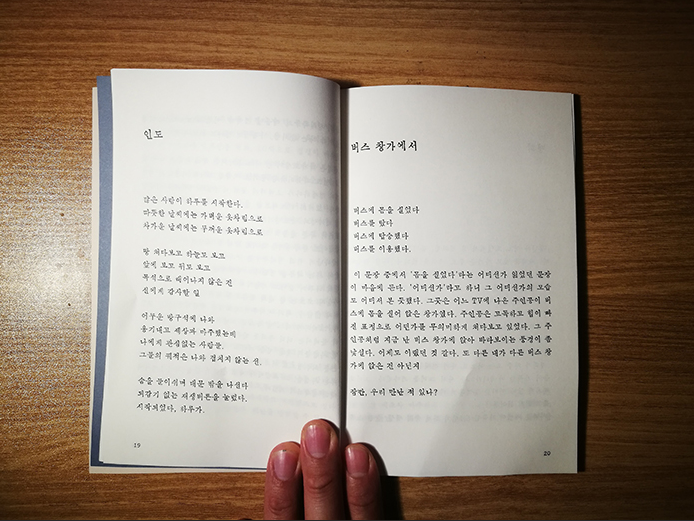 인도
많은 사람이 하루를 시작한다.
따뜻한 날씨에는 가벼운 옷차림으로
차가운 날씨에는 두꺼운 옷차림으로
땅 쳐다보고 하늘도 보고
앞에 보고 뒤도 보고
목석으로 태어나지 않은 건
실케 감사할 일
어두운 방구석에 나와
용기내고 세상과 마주했는데
나에게 관심없는 사람들.
그들의 궤적은 나와 겹치지 않는 선.
숨을 들이쉬며 대문 밖을 나선다
되감기 없는 재생버튼을 눌렀다.
시작되었다, 하루가.
19
버스 창가에서
버스에 몸을 실었다
버스를 탔다
버스에 탑승했다
버스를 이용했다.
이 문장 중에서 '몸을 실었다'라는 어디선가 읽었던 문장
이 마음에 든다. '어디선가'라고 하니 그 어디선가의 모습
도 어디서 본 듯했다. 그곳은 어느 TV에 나온 주인공이 버
스에 몸을 실어 앉은 창가였다. 주인공은 꼬독하고 힘이 빠
진 표정으로 어딘가를 무의미하게 쳐다보고 있었다. 그 주
인공처럼 지금 난 버스 창가에 앉아 바라보이는 풍경이 좀
낯설다. 어제도 이랬던 것 같다. 또 다른 내가 다른 버스 창
가에 앉은 건 아닌지
잠깐, 우리 만난 적 있나?
20